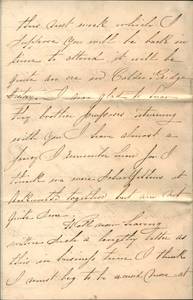 this next week which I
suppose you will be back in
time to attend it will be
quite an era in Calder Bridge
I am glad to hear
thy brother proposes returning
with you I have almost a
fancy I remember him for I
think we were schoolfellows at
together but am not
quite sure
Well now having
written such a lengthy letter as
this in business time I think
I must beg to be excused more at